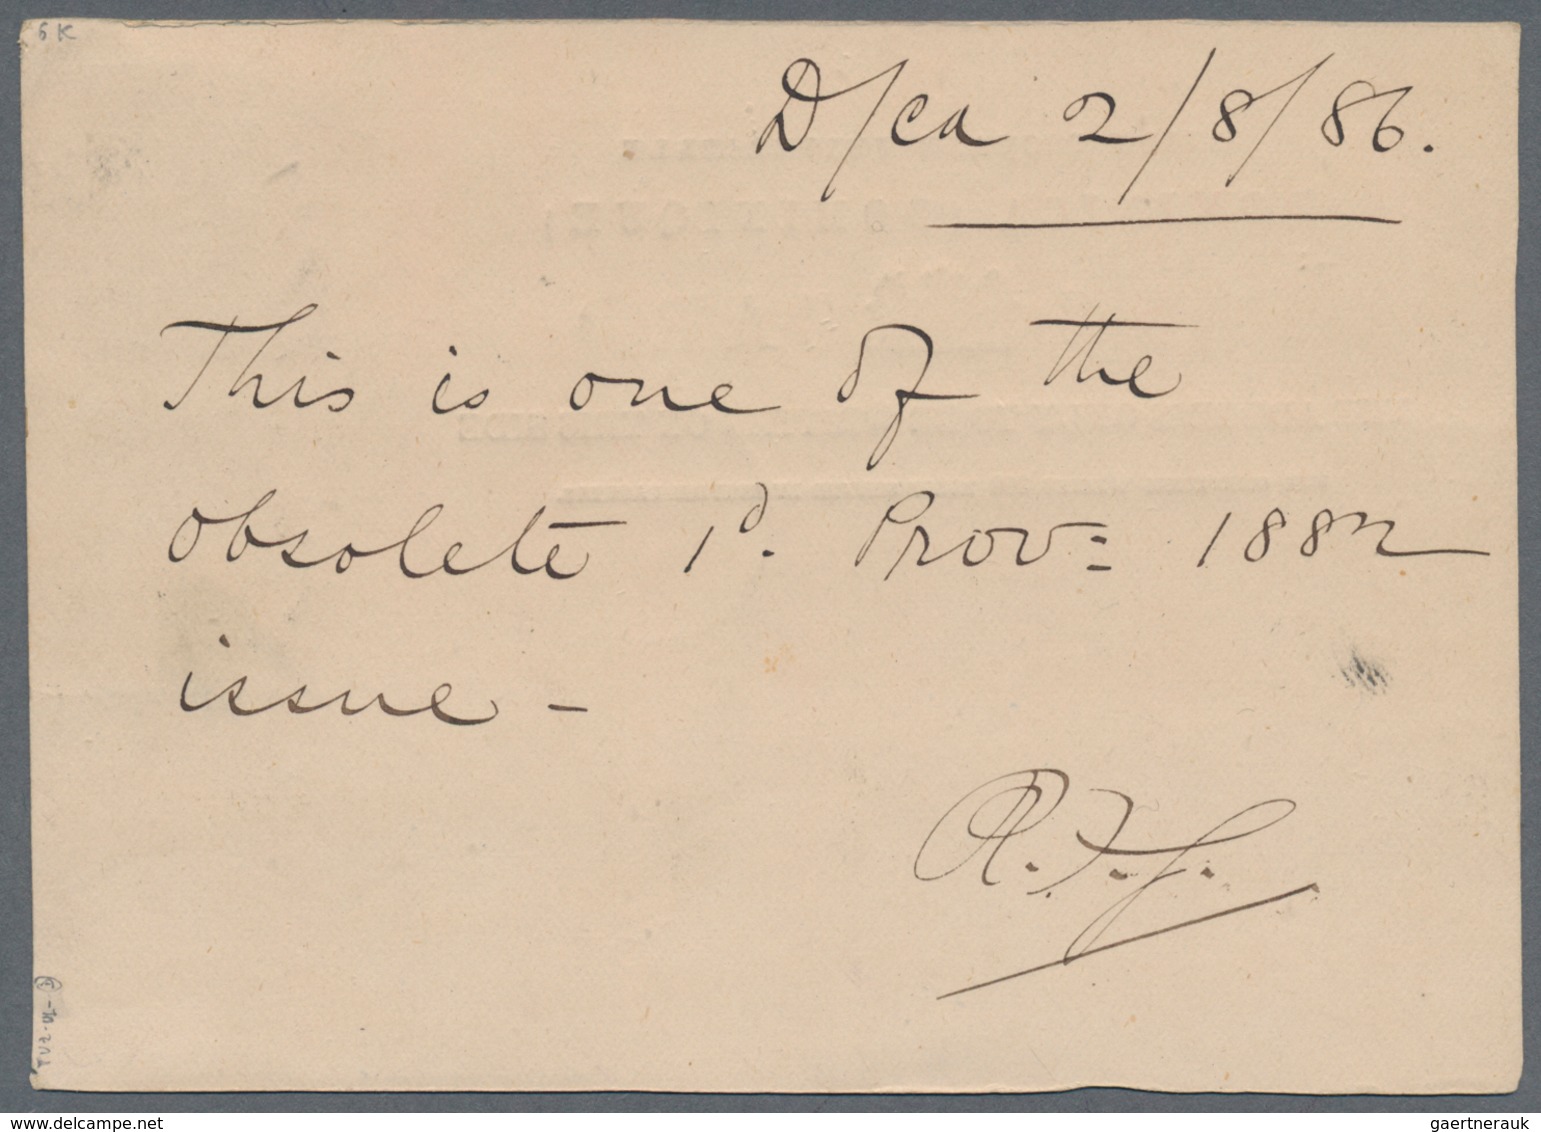 6K
D/ca 2/8/86.
This is one of the
obsolete 1d. Prov= 1882
issue -
R.F.G.
gaertnerauk @ delcampe.net